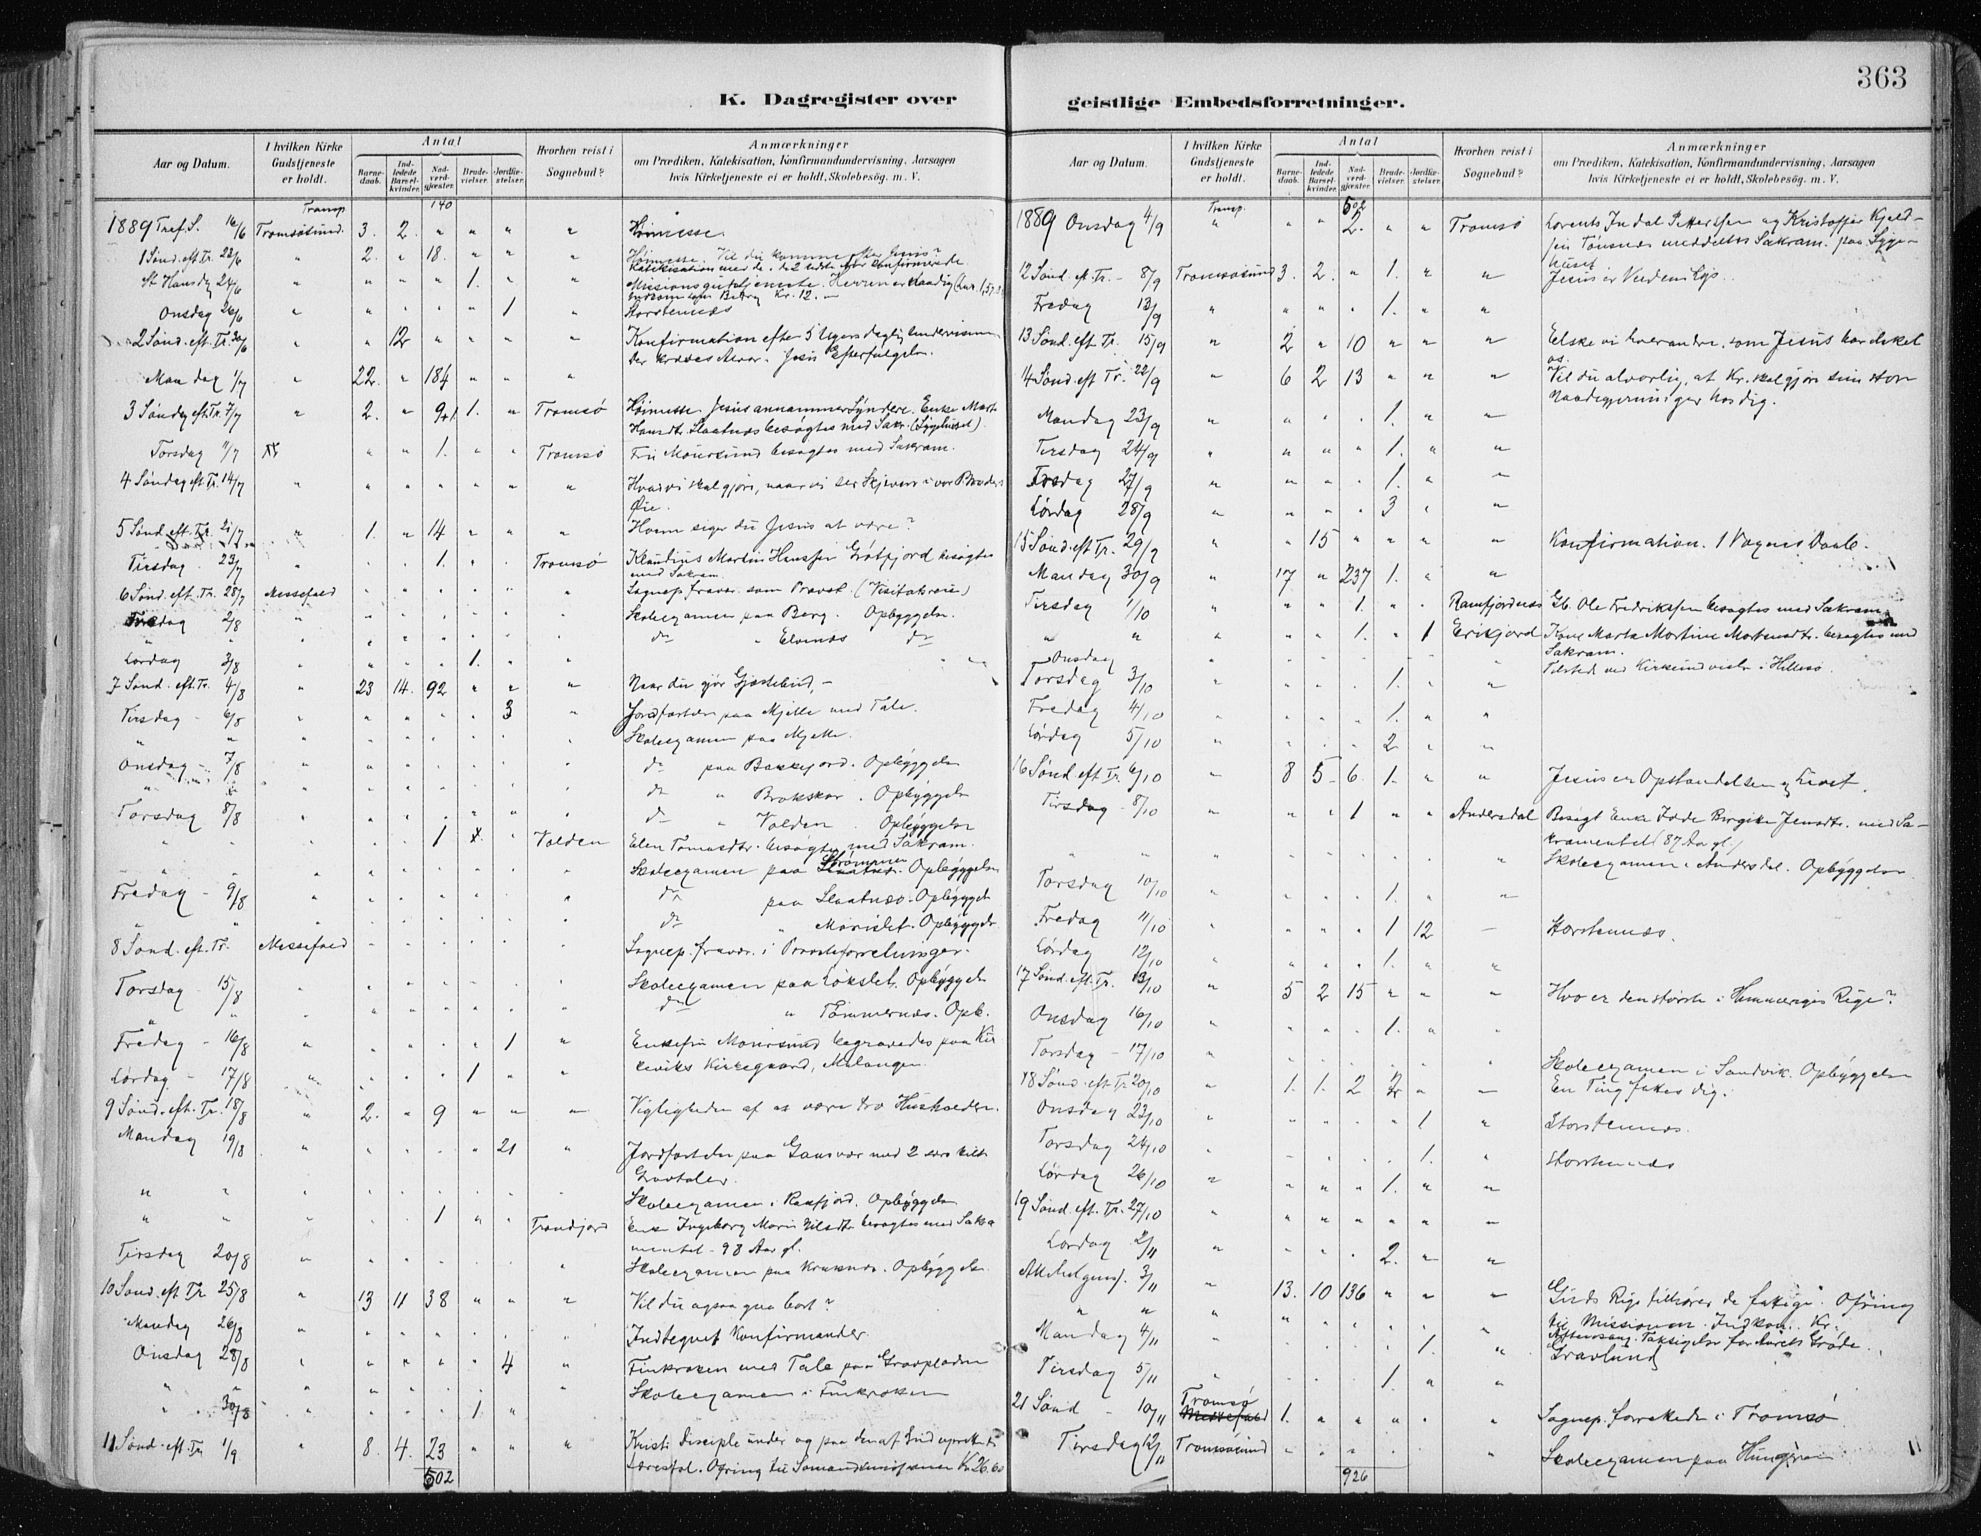 363
K. Dagregister over
geistlige Embedsforretninger.
Aar og Datum.
I hvilken Kirke Gudstjeneste er holdt.
Antal
Barne-daab.
Ind-ledede Barsel-kvinder.
Nad-verd-gjæster.
Brude-vielser.
Jordfæ-stelser.
Hvorhen reist i Sognebud?
Anmærkninger
om Prædiken, Katekisation, Konfirmandundervisning, Aarsagen
hvis Kirketjeneste ei er holdt, Skolebesøg. m. V.
Transp. 140
1889 Tref. S. 16/6 Tromsøsund. 3. 2. " " " " Høimesse.
1 Sønd. eft. Tr. 23/6 " 2. " 18. " " " Høimesse. Til du komme efter Jesus?
St Hansdag 24/6 " " " " 1. " " Missionsgudstjeneste. Herren er naadig
Onsdag 26/6 " " " " " 1 " Storstennæs
2 Sønd. eft. Tr. 30/6 " " 12 " " " " Konfirmation efter 5 Ugers daglig Undervisning
Der kræves Alvor. Jesu Efterfølgelse.
Mandag 1/7 " 22. " 184 " " "
3 Søndag eft. Tr. 7/7 " 2. " 9+1 1. " Tromsø Høimesse. Jesus annammer Syndere. Enke Marit
Hansdtr. Slaatnæs besøgtes med Sakr. (Sygehuset).
Torsdag 11/7 " " 1. " " Tromsø Fru Moursund besøgtes med Sakram.
4 Søndag eft. Tr. 14/7 " " " " " " " Hvad vi skal gjøre, naar vi ser Skjæven i vor Broders
Øie.
5 Sønd. eft. Tr. 21/7 " 1. " 14 " " " Hvem siger du Jesus at være?
Tirsdag 23/7 " " 1. " " Tromsø Klaudius Martin Hanssen Grøtfjord besøgtes
med Sakram.
6 Sønd. eft. Tr. 28/7 Messefald " " " " " " Sognep. fravær. som Provst (Visitatsreise)
Fredag 2/8 " " " " " " Skoleexamen paa Berg. Opbyggelse.
" " " " " " do " Elvenæs do
Lørdag 3/8 " " " " 1. " "
7 Sønd. eft. Tr. 4/8 " 23 14. 92 " " " Naar du gjør Gjæstebud, –
Tirsdag 6/8 " " " " " 3 " Jordfæstelse paa Mjelle med Tale.
" " " " " " " Skoleexamen paa Mjelle.
Onsdag 7/8 " " " " " " do paa Bakkejord. Opbyggelse
" " " " " " do " Brokskar. Opbyggelse
Torsdag 8/8 " " " " " " do " Volden. Opbyggelse
" " " 1 " Volden Elen Tomasdtr. besøgtes med Sakram.
" " " " " " Skoleexamen paa Strømmen Opbyggelse
Fredag 9/8 " " " " " " do paa Slaatnæs. Opbyggelse
" " " " " " do " Opbyggelse
8 Sønd. eft. Tr. Messefald " " " " " " Sognep. fravær. i Provsteforretninger.
Torsdag 15/8 " " " " " " Skoleexamen paa Løkslet. Opbyggelse
" " " " " " " do " Tømmernæs. Opb.
Fredag 16/8 " " " " " 1 " Enkefru Moursund begravedes paa
Kirkegaard, Malangen.
Lørdag 17/8 " " " " 1 " "
9 Sønd. eft. Tr. 18/8 " 2. " 9 " " " Vigtigheden af at være tro Husholdere.
Mandag 19/8 " " " " " 21 " Jordfæstelse paa Gaasvær med 2 særskilte
Gravtaler.
" " Skoleexamen i Opbyggelse
" " " " " 1 " " Enke Ingeborg Marie Nilsdtr. besøgtes med Sakra
mentet – 98 Aar gl.
Tirsdag 20/8 " " " " " " Skoleexamen paa Kraknæs. Opbyggelse.
10 Sønd. eft. Tr. 25/8 " 13 11 38 " " " Vil du ogsaa gaa bort?
Mandag 26/8 " " " " " " Indtegnet Konfirmander.
Onsdag 28/8 " " " " " 4 " Finkroken med Tale paa Gravpladsen
" " " " " " " Skoleexamen i Finkroken
" 30/8 " " " " 1. "
11 Sønd. eft. Tr. 1/9 " 8. 4. 23 " " " Kristi Disciple under og paa den af Gud oprettede
Lærestol. Ofring til Sømandsmissionen Kr. 26.60
502
Aar og Datum.
I hvilken Kirke Gudstjeneste er holdt.
Antal
Barne-daab.
Ind-ledede Barsel-kvinder.
Nad-verd-gjæster.
Brude-vielser.
Jordfæ-stelser.
Hvorhen reist i Sognebud?
Anmærkninger
om Prædiken, Katekisation, Konfirmandundervisning, Aarsagen
hvis Kirketjeneste ei er holdt, Skolebesøg. m. V.
Transp. 502
1889 Onsdag 4/9 " " " 2. " " Tromsø Lorents Indal Pettersen og Kristoffer Kjeld-
sen Tønsnæs meddeltes Sakram. paa Syge-
huset
12 Sønd. eft. Tr. – 8/9 Tromsøsund 3. 2. " 1. " " Jesus er Verdens Lys.
Fredag 13/9 " " " " 1. " "
13 Sønd. eft. Tr. 15/9 " 2 " 10 " " " Elske vi hverandre, som Jesus har elsket
os.
14 Sønd. eft. Tr. 22/9 " 6 2 13 " " " Vil du alvorlig, at Kr. skal gjøre sin store
Naadegjerninger hos dig.
Mandag 23/9 " " " " 1. " "
Tirsdag 24/9 " " " " 1. " "
Fredag 27/9 " " " " 1. " "
Lørdag 28/9 " " " " 3 " "
15 Sønd. eft. Tr. 29/9 " " 15 " " " " Konfirmation. 1 Voxens Daab.
Mandag 30/9 " 17 " 237 1. " "
Tirsdag 1/10 " " " 1. " " Ramfjordnæs Gb. Ole Fredriksen besøgtes med Sakram.
" " " " " 1. " 1 Erikjord Kone Marta Martine Mortensdtr. besøgtes med
Sakram.
Onsdag " Tilsted ved Kirkeindvielse i Hillesø.
Torsdag 3/10 " " " " 1. " "
Fredag 4/10 " " " " 1. " "
Lørdag 5/10 " " " " 2. " "
16 Sønd. eft. Tr. 6/10 " 8 5 6. 1. " " Jesus er Opstandelsen og Livet.
Tirsdag – 8/10 " " " 1 " " Andersdal Besøgt Enke Jensdtr. med Sa-
kramentet (87 Aar gl.)
" " " " Skoleexamen i Andersdal. Opbyggelse
Torsdag 10/10 " " " " 1. " "
Fredag 11/10 " " " " 1 12 – Storstennæs.
Lørdag 12/10 " " " " 1. " "
17 Sønd. eft. Tr. 13/10 " 5 2 15 " " " Hvo er den største i Himmeriges Rige?
Onsdag 16/10 " " " " 1. " "
Torsdag – 17/10 " " " " " " Skoleexamen i Sandvik. Opbyggelse
18 Sønd. eft. Tr. 20/10 " 1. 1. 2 2 " – En Ting fattes dig.
Onsdag 23/10 " " " " " 1 " Storstennæs.
Torsdag 24/10 " " " " " 1. " Storstennæs
Lørdag 26/10 " " " " 1. " "
19 Sønd. eft. Tr. 27/10 " " " " " " "
Lørdag 2/11 " " " " 2. " "
Allehelgensd. 3/11 " 13. 10 136 " " " Guds Rige tilhører de fattige. Ofring
" " " " " " " til Missionen. Indkom. Kr.
Aftensang. Taksigelse for Aarets Grøde.
Mandag 4/11 " " " " " 1. " Gravlund
Tirsdag 5/11 " " " " 1. " "
21 Sønd – 10/11 Tromsø Messefald 1. " " " " " Sognep. forrettede i Tromsø
Tirsdag 12/11 Tromsøsund " " " " " Skoleexamen paa
926